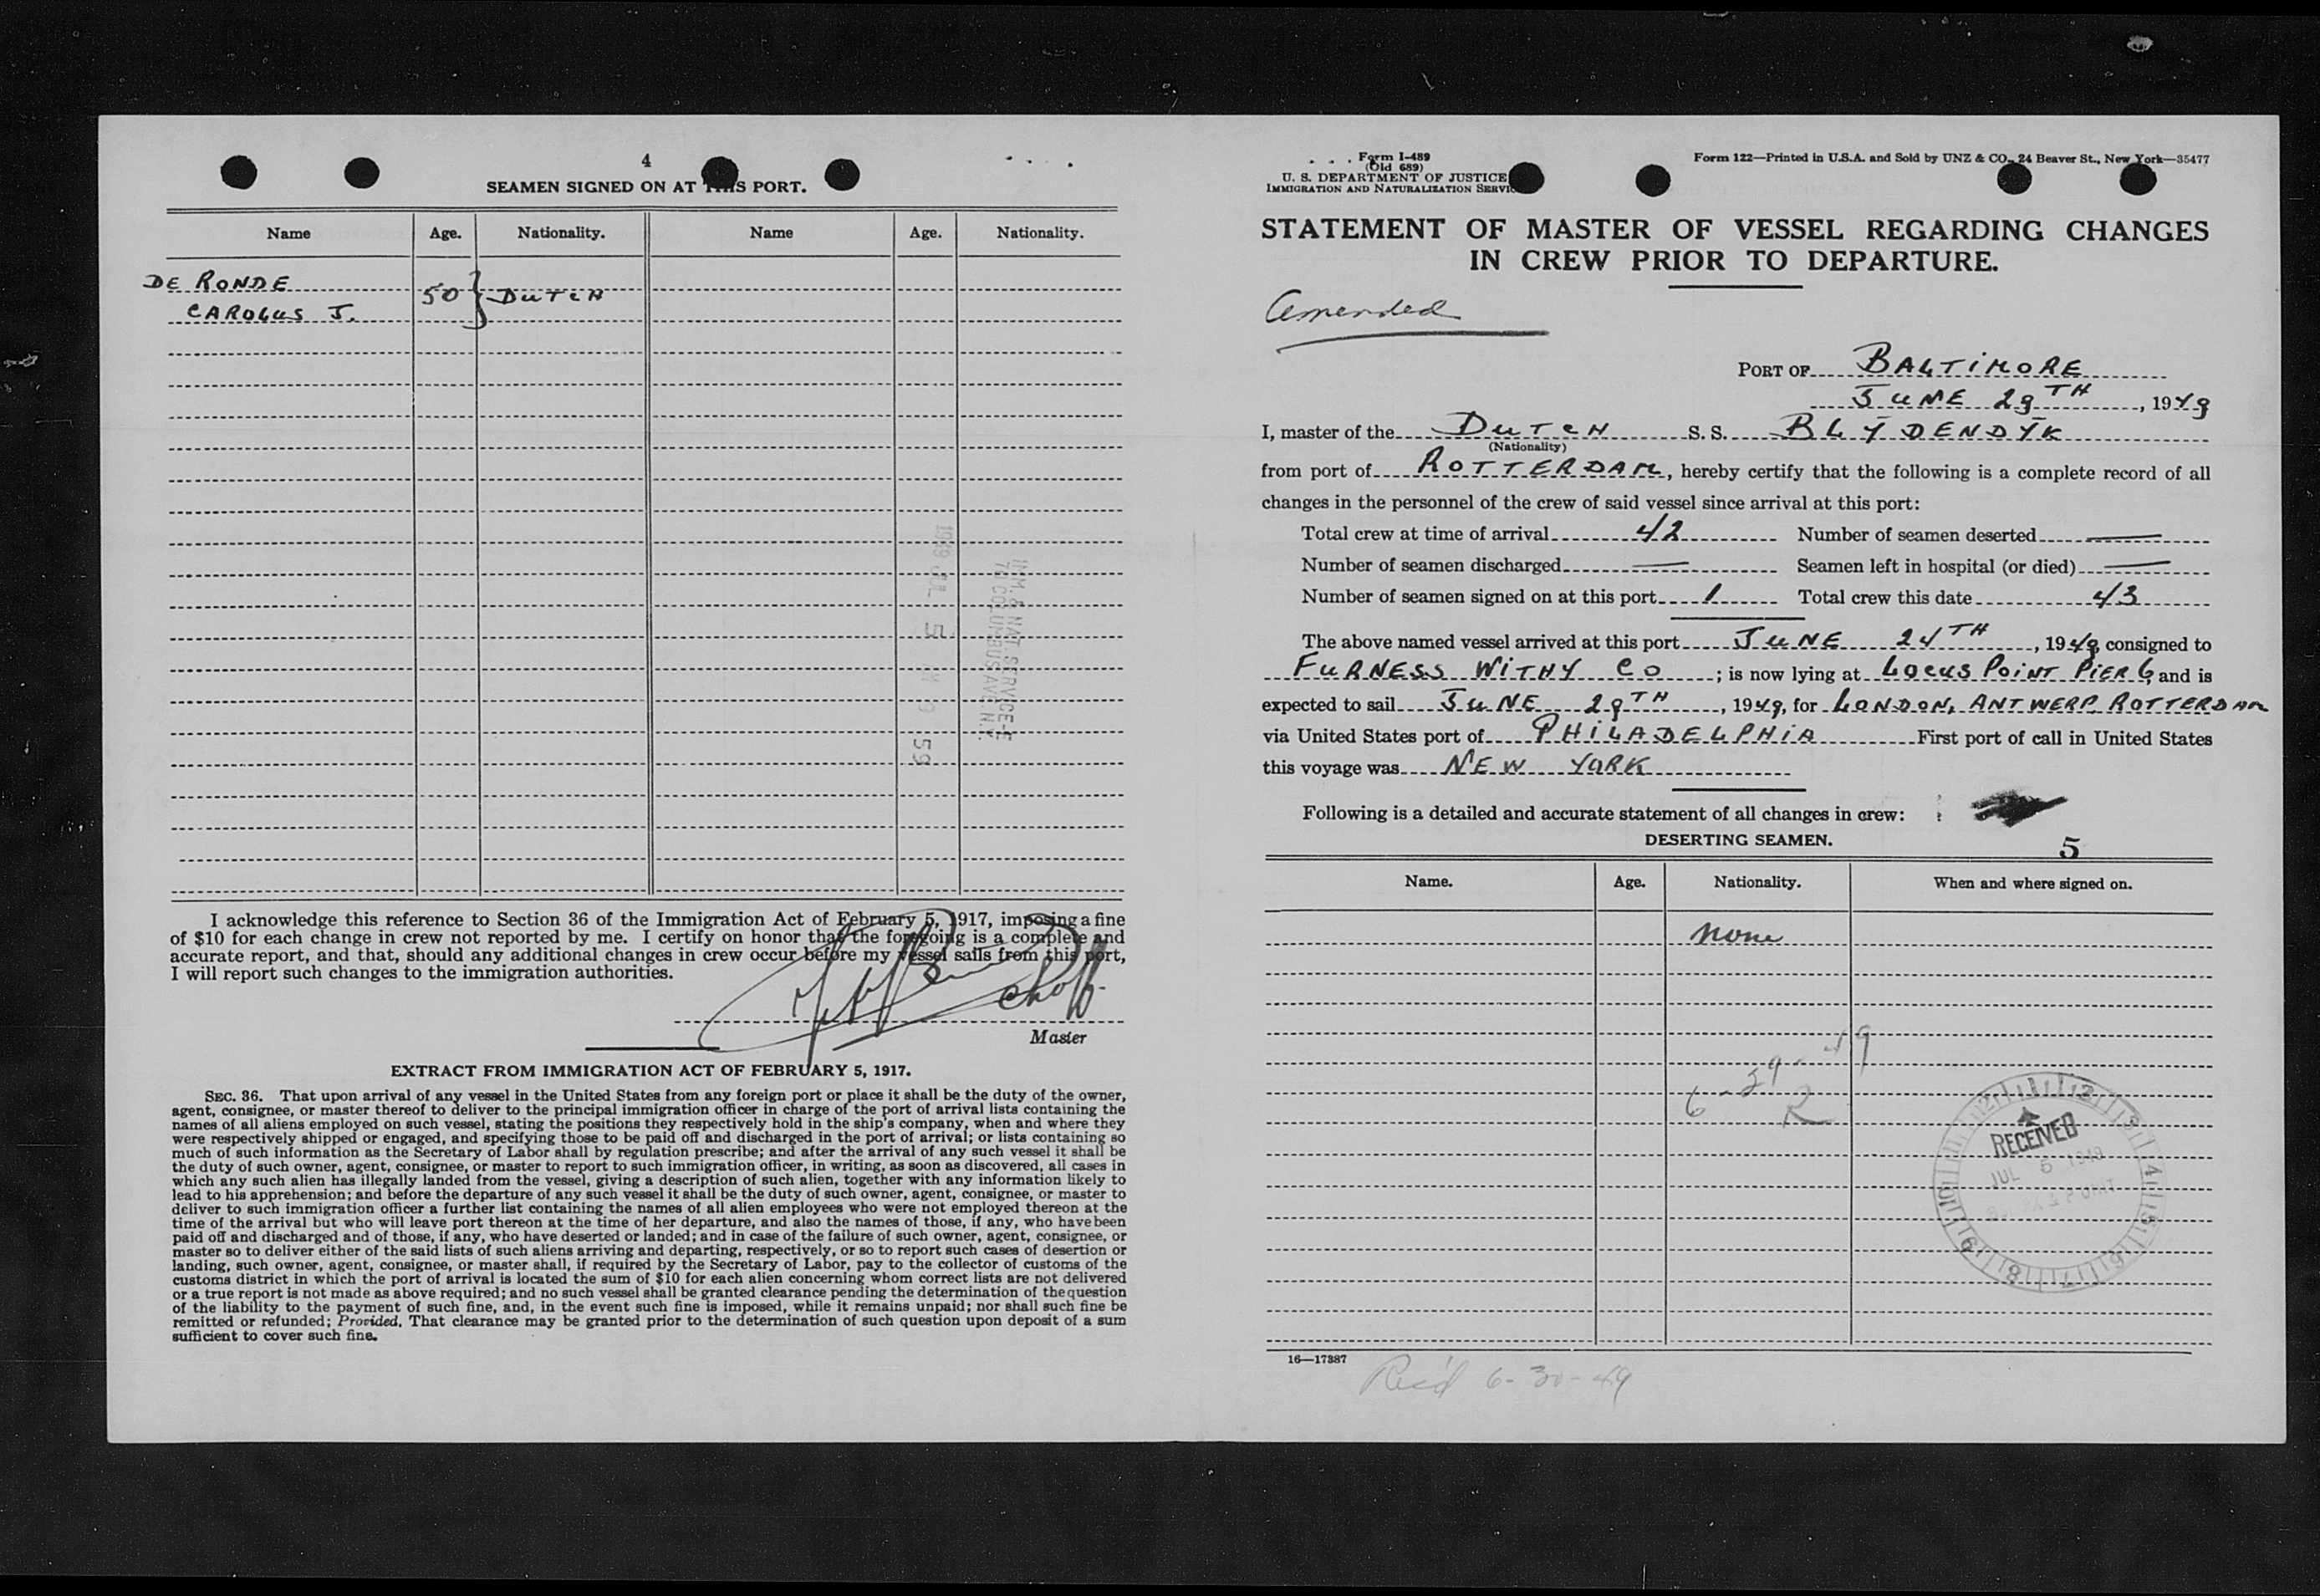 4
SEAMEN SIGNED ON AT THIS PORT.
Name Age. Nationality. Name Age. Nationality.
DE RONDE
CAROLUS J. 50 } DUTCH
1949 JUL 5 AM 9 59
IMM. & NAT. SERVICE-E
70 COLUMBUS AVE. N.Y.
I acknowledge this reference to Section 36 of the Immigration Act of February 5, 1917, imposing a fine
of $10 for each change in crew not reported by me. I certify on honor that the foregoing is a complete and
accurate report, and that, should any additional changes in crew occur before my vessel sails from this port,
I will report such changes to the immigration authorities.
Master
EXTRACT FROM IMMIGRATION ACT OF FEBRUARY 5, 1917.
SEC. 36. That upon arrival of any vessel in the United States from any foreign port or place it shall be the duty of the owner,
agent, consignee, or master thereof to deliver to the principal immigration officer in charge of the port of arrival lists containing the
names of all aliens employed on such vessel, stating the positions they respectively hold in the ship's company, when and where they
were respectively shipped or engaged, and specifying those to be paid off and discharged in the port of arrival; or lists containing so
much of such information as the Secretary of Labor shall by regulation prescribe; and after the arrival of any such vessel it shall be
the duty of such owner, agent, consignee, or master to report to such immigration officer, in writing, as soon as discovered, all cases in
which any such alien has illegally landed from the vessel, giving a description of such alien, together with any information likely to
lead to his apprehension; and before the departure of any such vessel it shall be the duty of such owner, agent, consignee, or master to
deliver to such immigration officer a further list containing the names of all alien employees who were not employed thereon at the
time of the arrival but who will leave port thereon at the time of her departure, and also the names of those, if any, who have been
paid off and discharged and of those, if any, who have deserted or landed; and in case of the failure of such owner, agent, consignee, or
master so to deliver either of the said lists of such aliens arriving and departing, respectively, or so to report such cases of desertion or
landing, such owner, agent, consignee, or master shall, if required by the Secretary of Labor, pay to the collector of customs of the
customs district in which the port of arrival is located the sum of $10 for each alien concerning whom correct lists are not delivered
or a true report is not made as above required; and no such vessel shall be granted clearance pending the determination of the question
of the liability to the payment of such fine, and, in the event such fine is imposed, while it remains unpaid; nor shall such fine be
remitted or refunded; Provided, That clearance may be granted prior to the determination of such question upon deposit of a sum
sufficient to cover such fine.
Form I-489
(Old 689)
U. S. DEPARTMENT OF JUSTICE
IMMIGRATION AND NATURALIZATION SERVICE
Form 122—Printed in U.S.A. and Sold by UNZ & CO., 24 Beaver St., New York—35477
STATEMENT OF MASTER OF VESSEL REGARDING CHANGES
IN CREW PRIOR TO DEPARTURE.
Amended
PORT OF BALTIMORE
JUNE 29TH, 1949
I, master of the DUTCH S. S. BLYDENDYK
(Nationality)
from port of ROTTERDAM, hereby certify that the following is a complete record of all
changes in the personnel of the crew of said vessel since arrival at this port:
Total crew at time of arrival 42 Number of seamen deserted —
Number of seamen discharged — Seamen left in hospital (or died) —
Number of seamen signed on at this port 1 Total crew this date 43
The above named vessel arrived at this port JUNE 24TH, 1949, consigned to
FURNESS WITHY CO; is now lying at LOCUS POINT PIER 6, and is
expected to sail JUNE 29TH, 1949, for LONDON, ANTWERP, ROTTERDAM
via United States port of PHILADELPHIA First port of call in United States
this voyage was NEW YORK
Following is a detailed and accurate statement of all changes in crew:
DESERTING SEAMEN.
5
Name. Age. Nationality. When and where signed on.
None
6-29-49
R
RECEIVED
JUL 5 1949
16—17387
Rec'd 6-30-49